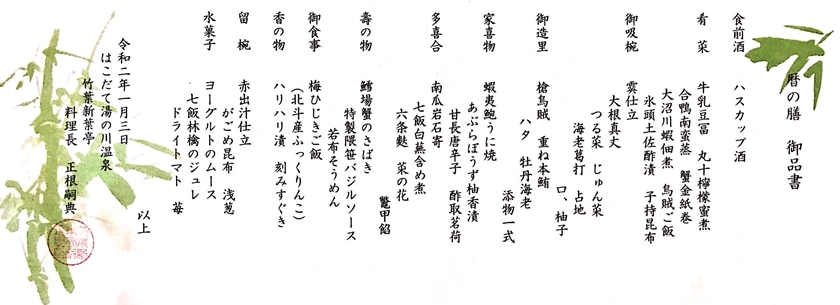 暦の膳　御品書
食前酒　ハスカップ酒
肴菜　牛乳豆冨　丸十檸檬蜜煮
合鴨南蛮蒸　蟹金紙巻
大沼川蝦佃煮　烏賊ご飯
氷頭土佐酢漬　子持昆布
御吸椀　雲仕立
大根真丈
つる菜　じゅん菜
海老葛打　占地
口、柚子
御造里　槍烏賊　重ね本鮪
ハタ　牡丹海老
添物一式
家喜物　蝦夷鮑うに焼
あぶらぼうず柚香漬
甘長唐辛子　酢取茗荷
多喜合　南瓜岩石寄
七飯白蕪含め煮
六条麩　菜の花
鼈甲餡
壽の物　鱈場蟹のさばき
特製隈笹バジルソース
若布そうめん
御食事　梅ひじきご飯
（北斗産ふっくりんこ）
香の物　ハリハリ漬　刻みすぐき
留椀　赤出汁仕立
がごめ昆布　浅葱
水菓子　ヨーグルトのムース
七飯林檎のジュレ
ドライトマト　苺
以上
令和二年一月三日
はこだて湯の川温泉
竹葉新葉亭
料理長　正根嗣典